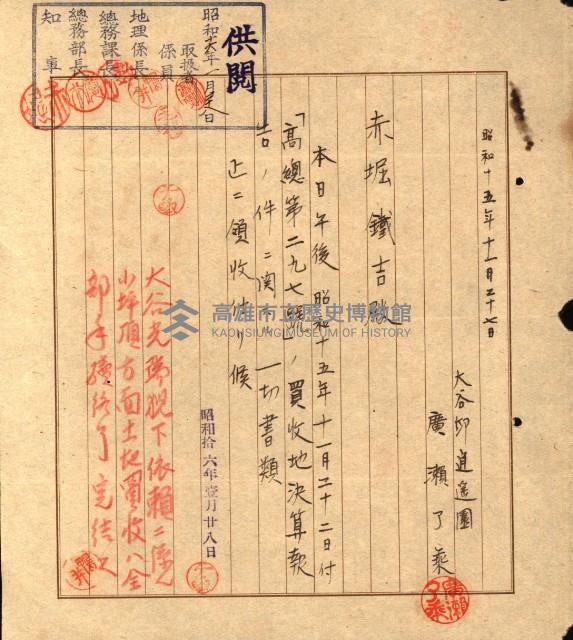 供閱
昭和十六年一月　日
取扱者
係員
地理係長
總務課長
總務部長
知事
昭和十五年十一月二十七日
大谷邸逍遙園
廣瀬了乘
赤堀鐵吉殿
本日午後昭和十五年十一月二十二日付
「高總第二九七號」ノ買收地決算報
告ノ件ニ関スル一切書類
正ニ領收仕リ候
昭和拾六年壹月廿八日
大谷光瑞猊下依賴ニ係ル
小坪頂方面土地買收ハ全
部手續終了完結
高雄市立歷史博物館
KAOHSIUNG MUSEUM OF HISTORY
廣瀬了乘